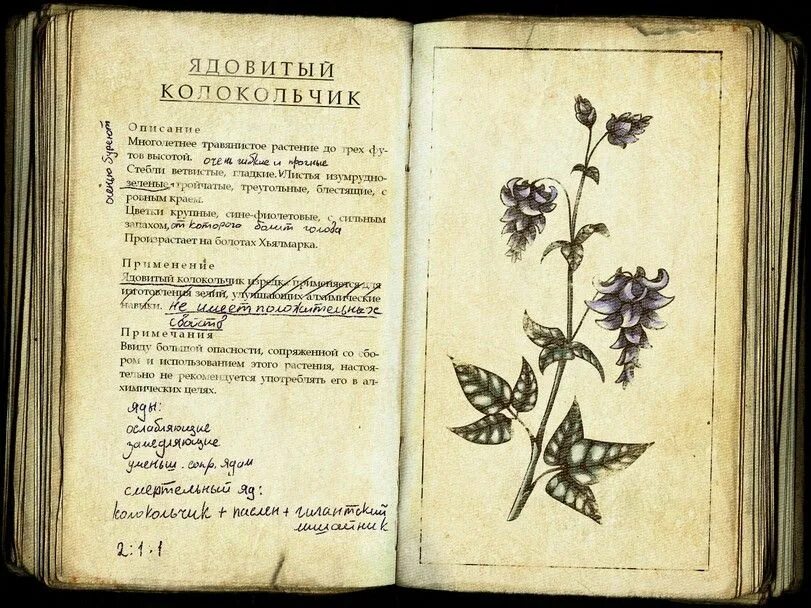 ЯДОВИТЫЙ
КОЛОКОЛЬЧИК
Описание
Многолетнее травянистое растение до трех фу-
тов высотой. очень гибкие и прочные
Стебли ветвистые, гладкие. Листья изумрудно-
зеленые, тройчатые, треугольные, блестящие, с
ровным краем.
Цветки крупные, сине-фиолетовые, с сильным
запахом, от которого болит голова
Произрастает на болотах Хьялмарка.
Применение
Ядовитый колокольчик изредка применяется для
изготовления зелий, улучшающих алхимические
навыки. не имеет положительных
свойств
Примечания
Ввиду большой опасности, сопряженной со сбо-
ром и использованием этого растения, настоя-
тельно не рекомендуется употреблять его в ал-
химических целях.
яды:
ослабляющие
замедляющие
уменьш. сопр. ядам
смертельный яд:
колокольчик + паслен + гигантский
лишайник
2:1:1
буреют